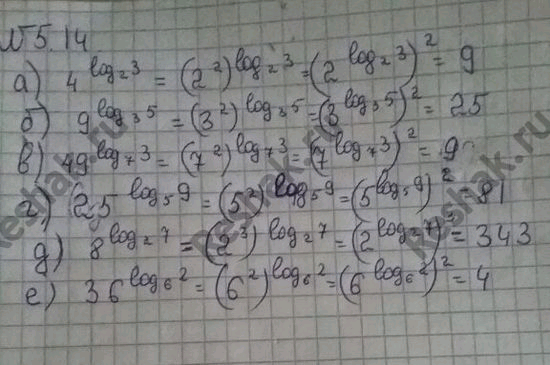 №5.14.
а) 4^{log_2 3} = (2^2)^{log_2 3} = (2^{log_2 3})^2 = 9
б) 9^{log_3 5} = (3^2)^{log_3 5} = (3^{log_3 5})^2 = 25
в) 49^{log_7 3} = (7^2)^{log_7 3} = (7^{log_7 3})^2 = 9
г) 25^{log_5 9} = (5^2)^{log_5 9} = (5^{log_5 9})^2 = 81
д) 8^{log_2 7} = (2^3)^{log_2 7} = (2^{log_2 7})^3 = 343
е) 36^{log_6 2} = (6^2)^{log_6 2} = (6^{log_6 2})^2 = 4
Reshak.ru
Reshak.ru
Reshak.ru